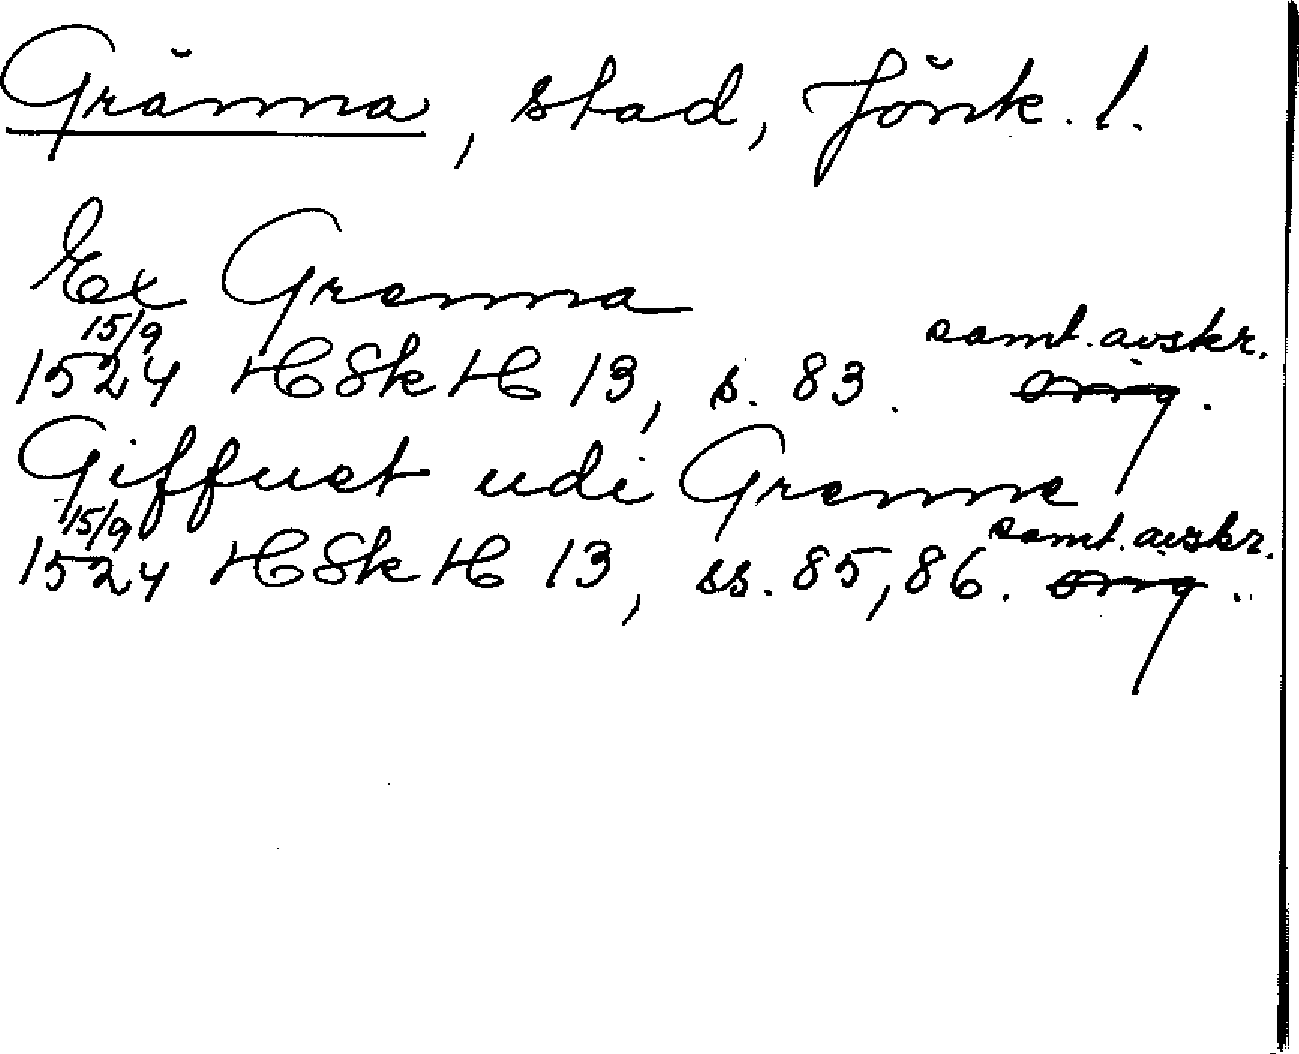 Gränna, stad, Jönk. l.
Ex Grenna
15/9 samt. avskr.
1524 HSkH 13, s. 83. orig.
Giffuet udi Grenne
15/9 samt. avskr.
1524 HSkH 13, ss. 85, 86. orig.